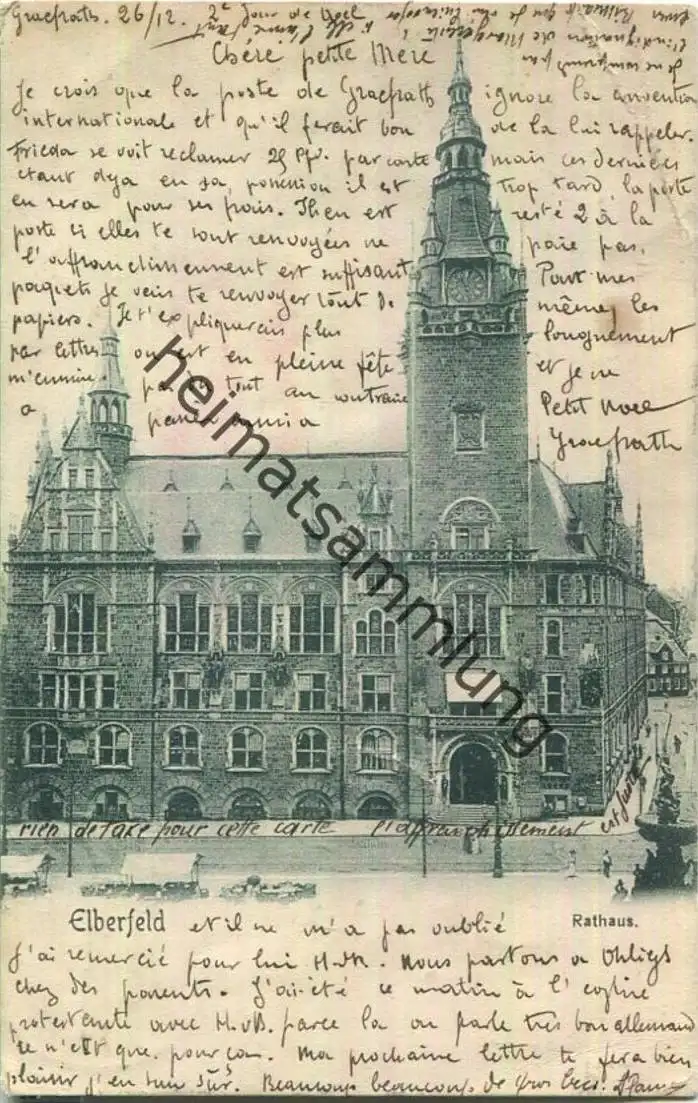 Graefrath. 26/12. 2e jour de Noël
Chère petite Mère
Je crois que la poste de Graefrath ignore la convention
internationale et qu'il ferait bon de la lui rappeler.
Frieda se voit réclamer 25 Pf. par carte mais ces dernières
étant déja en sa possession il est trop tard, la poste
en sera pour ses frais. Il en est resté 2 à la
poste si elles te sont renvoyées ne paie pas,
l'affranchissement est suffisant. Pour mes
paquets je vais te renvoyer tout de même les
papiers. Je t'expliquerais plus longuement
par lettres on est en pleine fête et je ne
m'ennuie pas du tout au contraire Petit Noël
a Graefrath
heimatsammlung
rien de taxe pour cette carte l'affranchissement est juste
Elberfeld Rathaus.
et il ne m'a pas oublié
J'ai remercié pour lui Nous partons a Ohligs
chez des parents. J'ai été ce matin à l'église
protestante avec parce la on parle très bon allemand
ce n'est que pour ça. Ma prochaine lettre te fera bien
plaisir j'en suis sûr. Beaucoup beaucoup de gros